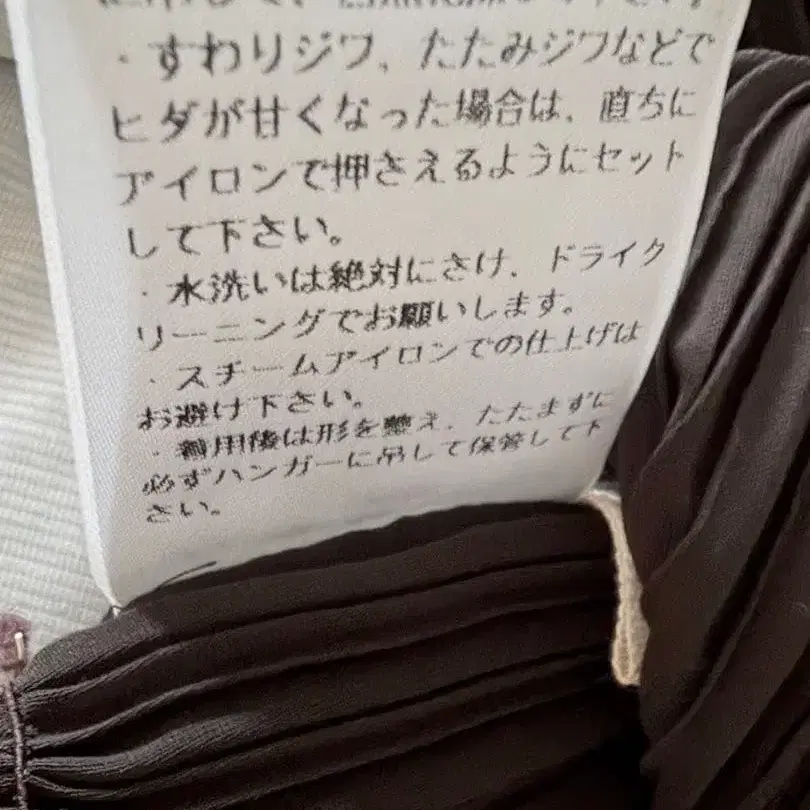 ・すわりジワ、たたみジワなどで
ヒダが甘くなった場合は、直ちに
アイロンで押さえるようにセット
して下さい。
・水洗いは絶対にさけ、ドライク
リーニングでお願いします。
・スチームアイロンでの仕上げは
お避け下さい。
・着用後は形を整え、たたまずに
必ずハンガーに吊して保管して下
さい。